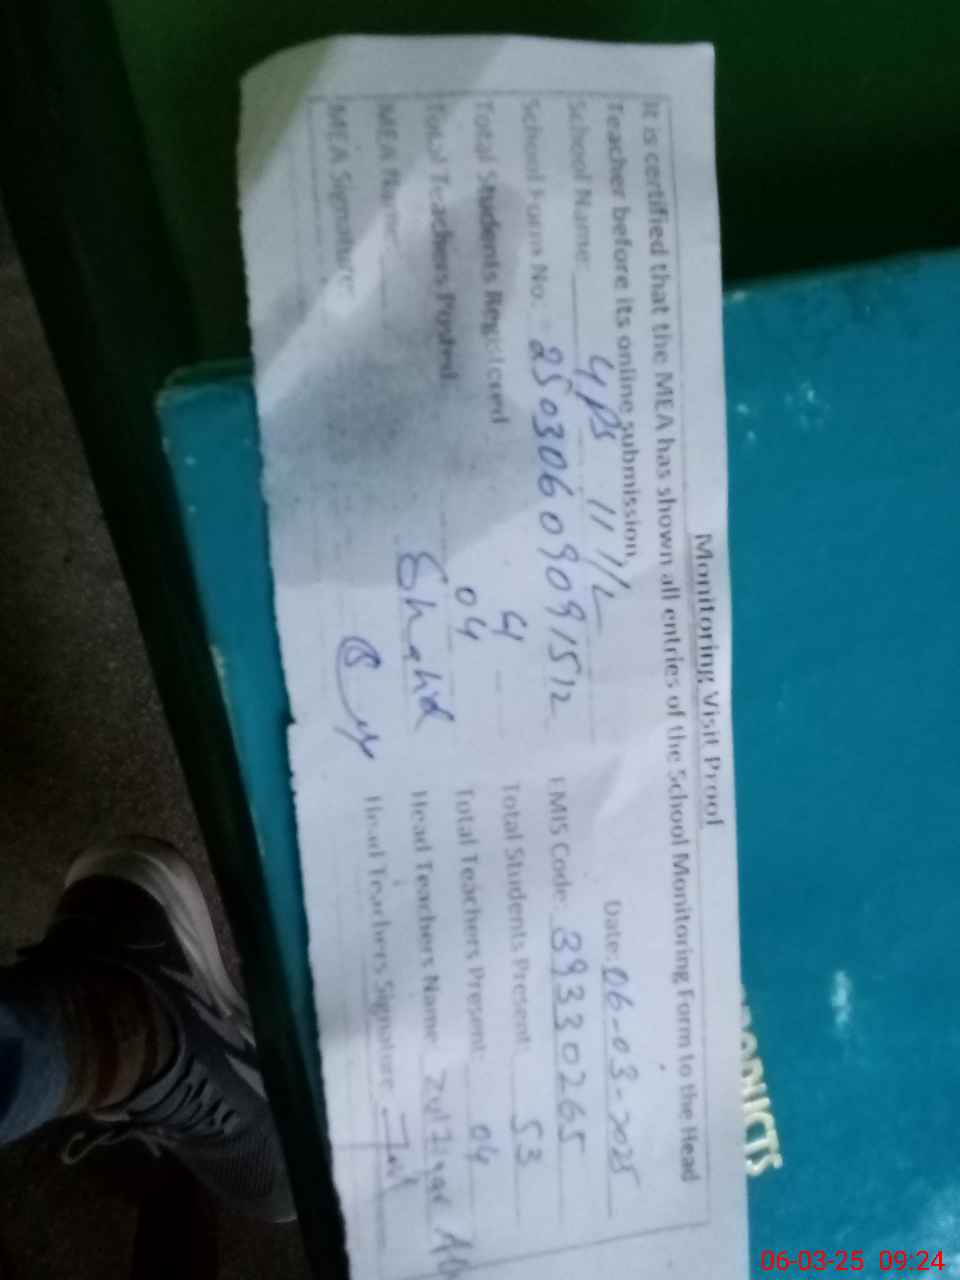 Monitoring Visit Proof
It is certified that the MEA has shown all entries of the School Monitoring Form to the Head
Teacher before its online submission.
Date: 06-03-2025
School Name: GPS 11/L
School Form No. 25030609091512 EMIS Code: 39330265
Total Students Registered 4 Total Students Present: 53
Total Teachers Posted 04 Total Teachers Present: 04
MEA Name: Shahid Head Teachers Name Zulfiqar
MEA Signature Head Teachers Signature
06-03-25 09:24